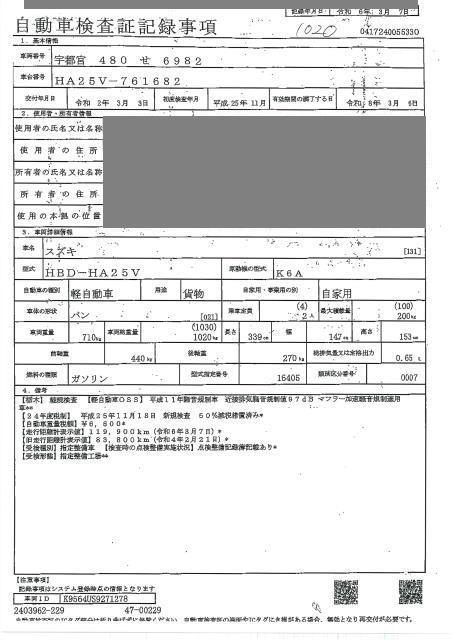 記録年月日 令和 6年 3月 7日
自動車検査証記録事項
1020
0417240055330
1. 基本情報
車両番号 宇都宮 480 せ 6982
車台番号 HA25V-761682
交付年月日 令和 2年 3月 3日 初度検査年月 平成 25年 11月 有効期間の満了する日 令和 8年 3月 6日
2. 使用者・所有者情報
使用者の氏名又は名称
使用者の住所
所有者の氏名又は名称
所有者の住所
使用の本拠の位置
3. 車両詳細情報
車名 スズキ [131]
型式 HBD-HA25V 原動機の型式 K6A
自動車の種別 軽自動車 用途 貨物 自家用・事業用の別 自家用
車体の形状 バン [021] 乗車定員 (4) 2人 最大積載量 (100) 200kg
車両重量 710kg 車両総重量 (1030) 1020kg 長さ 339cm 幅 147cm 高さ 153cm
前軸重 440kg 後軸重 270kg 総排気量又は定格出力 0.65 L
燃料の種類 ガソリン 型式指定番号 16405 類別区分番号 0007
4. 備考
【栃木】 継続検査 【軽自動車OSS】 平成11年騒音規制車 近接排気騒音規制値97dB マフラー加速騒音規制適用
車**
【24年度税制】 平成25年11月18日 新規検査 50%減税措置済み*
【自動車重量税額】 ¥6,600*
【走行距離計表示値】 119,900km (令和6年3月7日)*
【旧走行距離計表示値】 83,800km (令和4年2月21日)*
【受検種別】 指定整備車 【検査時の点検整備実施状況】 点検整備記録簿記載あり*
【受検形態】 指定整備工場**
【注意事項】
記録事項はシステム登録時点の情報となります
車両ID K9564US9271278
2403962-229 47-00229